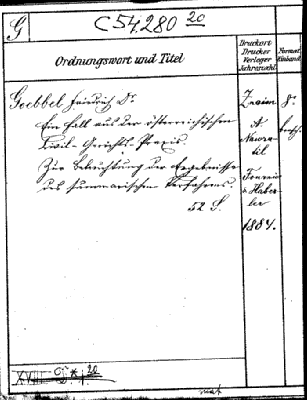 G.
C 54.280 20
Ordnungswort und Titel
Druckort
Drucker
Verleger
Jahreszahl
Format
Einband
Geebbel Friedrich Dr.
Ein Fall aus der österreichischen
Civil-Gerichts-Praxis.
Zur Beleuchtung der Ergebnisse
des summarischen Verfahrens.
52 S.
Znaim
8°
brosch.
Fournier
& Haber-
ler
1884.
XVIII